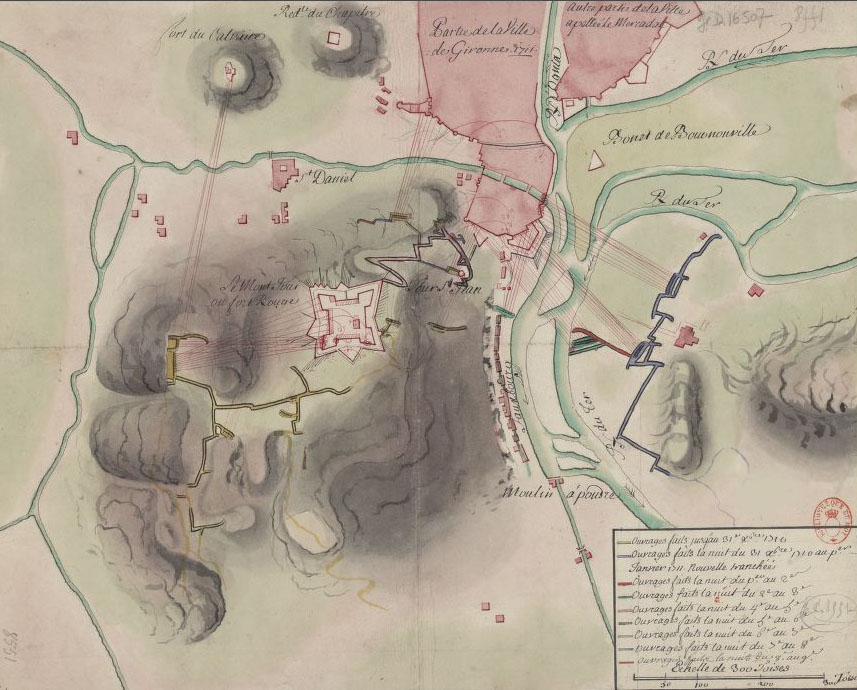 Fort du Calvaire
Redte. du Chapitre
Partie de la Ville
de Gironne 1711.
Autre partie de la Ville
apellée le Mercadal
Ge D 16507
R. du Ter
Bonet de Bournonville
R. du Ter
St. Daniel
Le Mont Joui
ou fort Rouge
Tour St. Jean
Fauxbourg
R. du Ter
Moulin à poudre
Ouvrages faits jusqu'au 31e. Xbre. 1710
Ouvrages faits la nuit du 31 Xbre. 1710 au per.
Janvier 1711 Nouvelle tranchée
Ouvrages faits la nuit du per. au 2e.
Ouvrages faits la nuit du 2e. au 3e.
Ouvrages faits la nuit du 4e. au 5e.
Ouvrages faits la nuit du 5e. au 6e.
Ouvrages faits la nuit du 6e. au 7e.
Ouvrages faits la nuit du 7e. au 8e.
Ouvrages faits la nuit du 8e. au 9e.
Echelle de 300 Toises
50 100 200 300 Toises